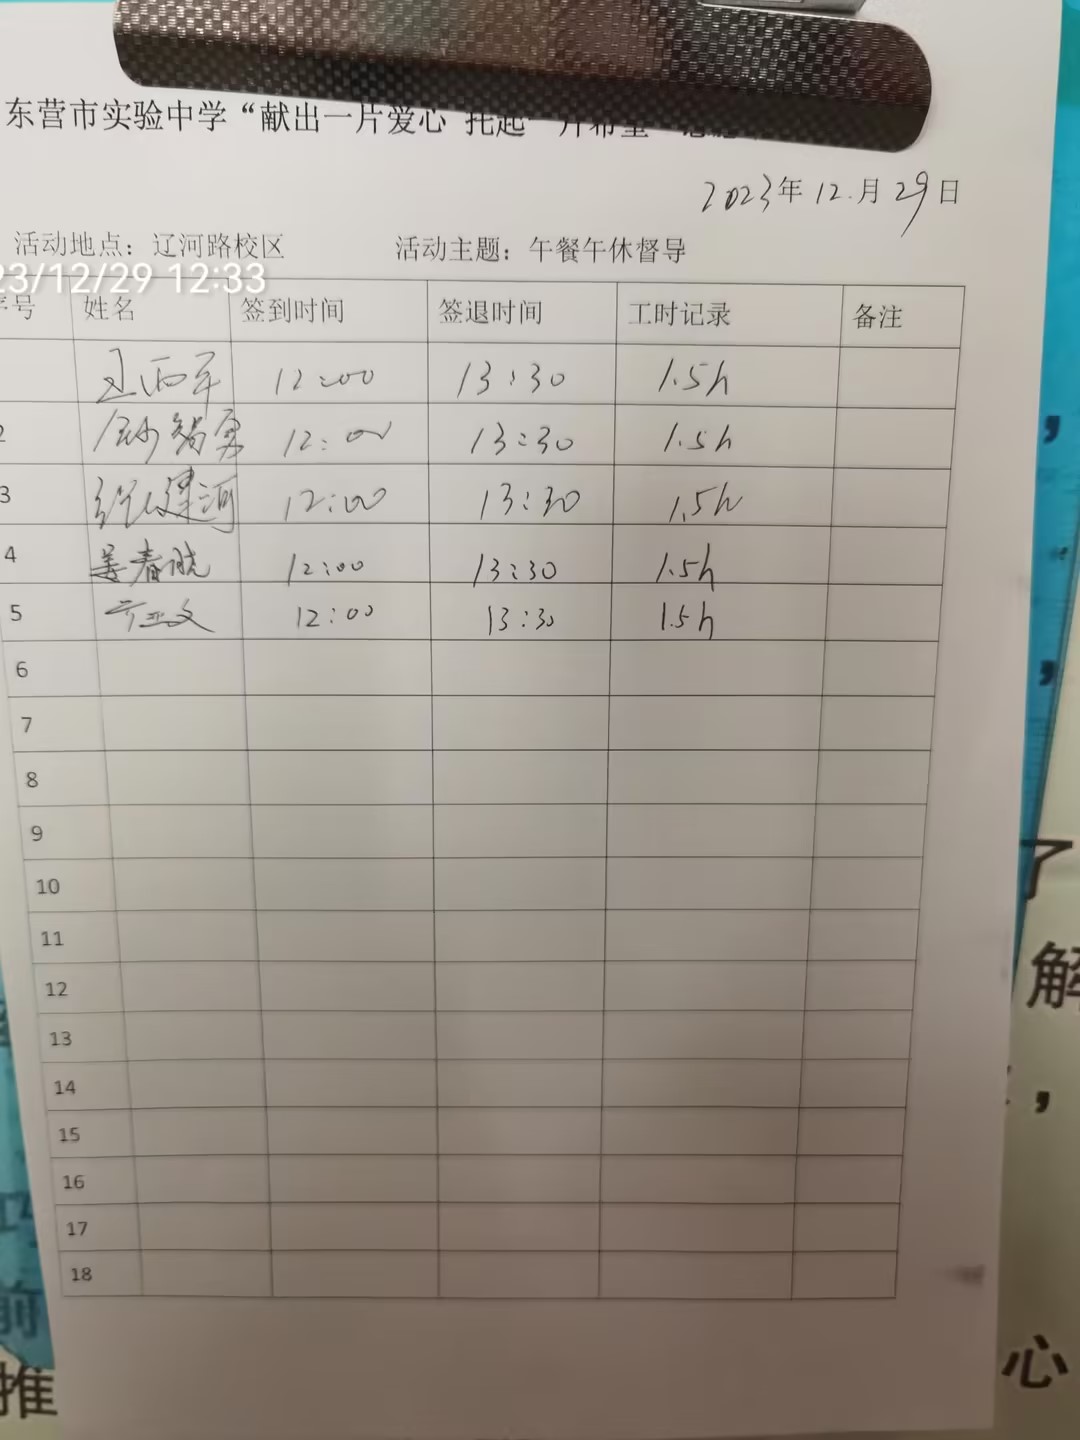 东营市实验中学“献出一片爱心 托起一片希望”
2023年12月29日
活动地点：辽河路校区 活动主题：午餐午休督导
23/12/29 12:33
序号 姓名 签到时间 签退时间 工时记录 备注
12:00 13:30 1.5h
2 12:00 13:30 1.5h
3 建河 12:00 13:30 1.5h
4 姜春晓 12:00 13:30 1.5h
5 12:00 13:30 1.5h
6
7
8
9
10
11
12
13
14
15
16
17
18
了
解
，
前
推
心